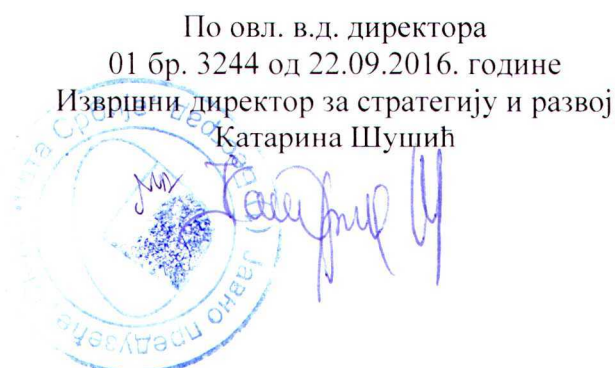 По овл. в.д. директора
01 бр. 3244 од 22.09.2016. године
Извршни директор за стратегију и развој
Катарина Шушић
Јавно предузеће